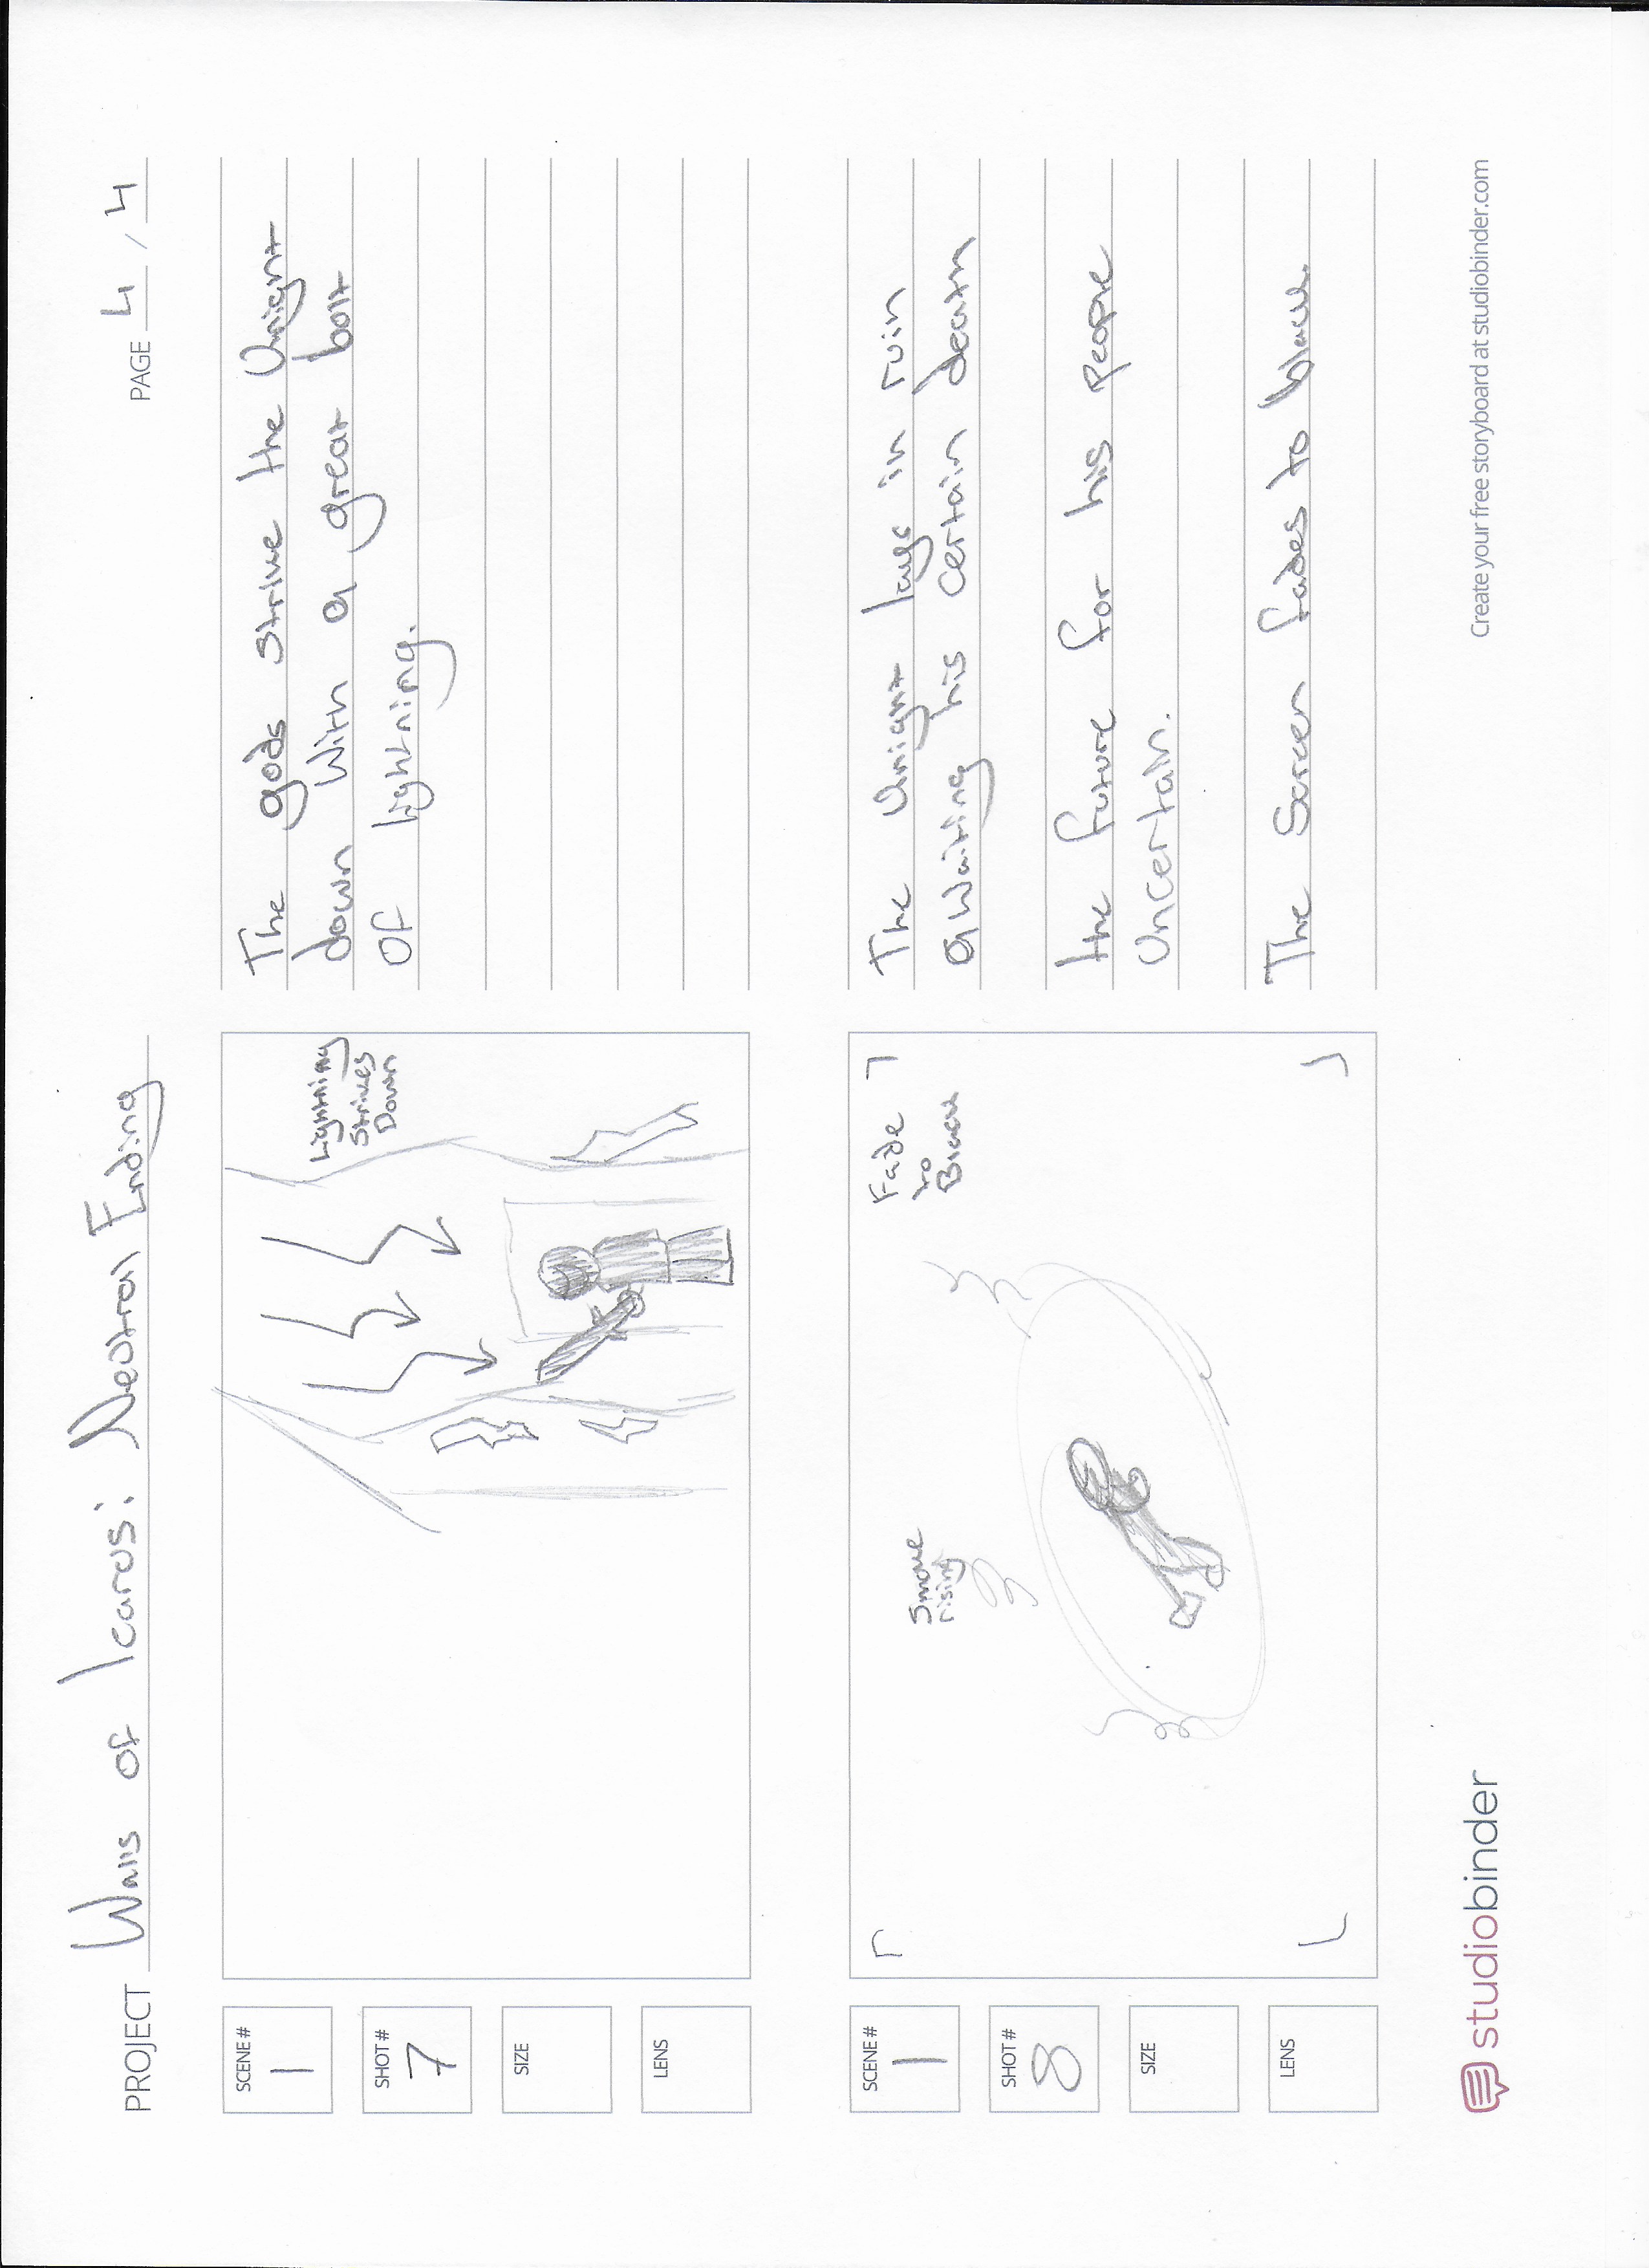 PROJECT Walls of Icarus: Neutral Ending
PAGE 4 / 4
SCENE #
1
SHOT #
7
SIZE
LENS
Lightning
Strikes
Down
The gods strike the Knight
down with a great bolt
of lightning.
SCENE #
1
SHOT #
8
SIZE
LENS
Smoke
rising
Fade
to
Black
The Knight lays in ruin
awaiting his certain death
the future for his people
uncertain.
The Screen fades to black.
studiobinder
Create your free storyboard at studiobinder.com